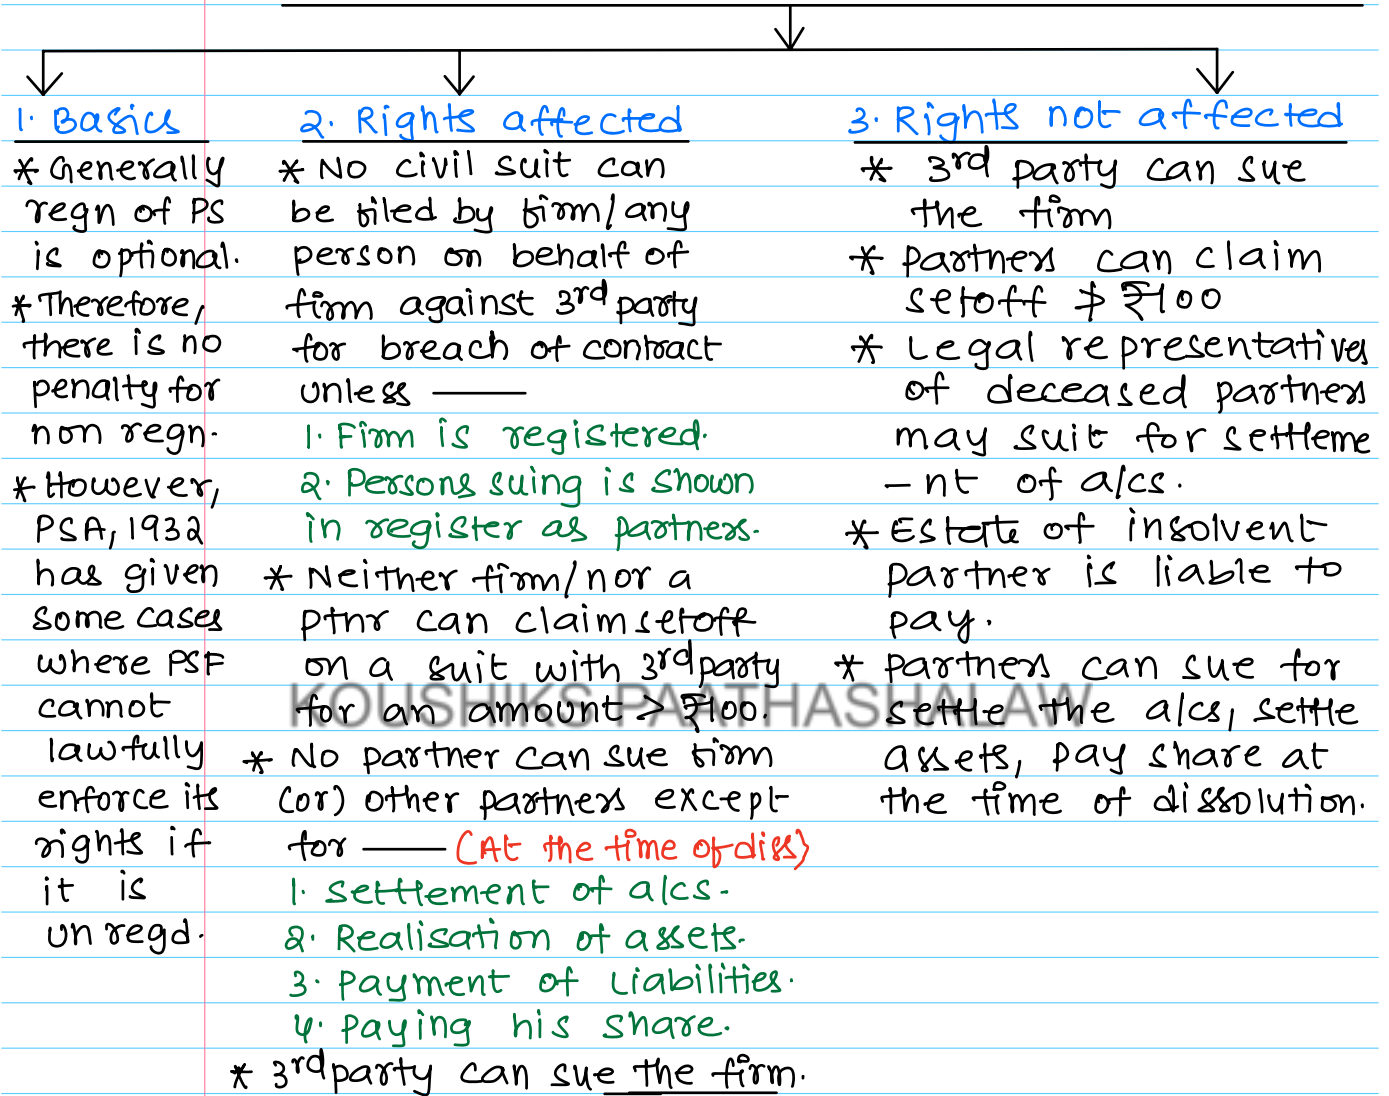 1. Basics
* Generally
regn of PS
is optional.
* Therefore,
there is no
penalty for
non regn.
* However,
PSA, 1932
has given
some cases
where PSF
cannot
lawfully
enforce its
rights if
it is
unregd.
2. Rights affected
* No civil suit can
be filed by firm/any
person on behalf of
firm against 3rd party
for breach of contract
unless —
1. Firm is registered.
2. Persons suing is shown
in register as partners.
* Neither firm/nor a
ptnr can claim setoff
on a suit with 3rd party
for an amount > ₹100.
* No partner can sue firm
(or) other partners except
for — (At the time of diss)
1. Settlement of a/cs.
2. Realisation of assets.
3. Payment of Liabilities.
4. Paying his share.
* 3rd party can sue the firm.
3. Rights not affected
* 3rd party can sue
the firm
* Partners can claim
setoff ≯ ₹100
* Legal representatives
of deceased partners
may suit for settleme
-nt of a/cs.
* Estate of insolvent
partner is liable to
pay.
* Partners can sue for
settle the a/cs, settle
assets, pay share at
the time of dissolution.
KOUSHIKS PAATHASHALAW